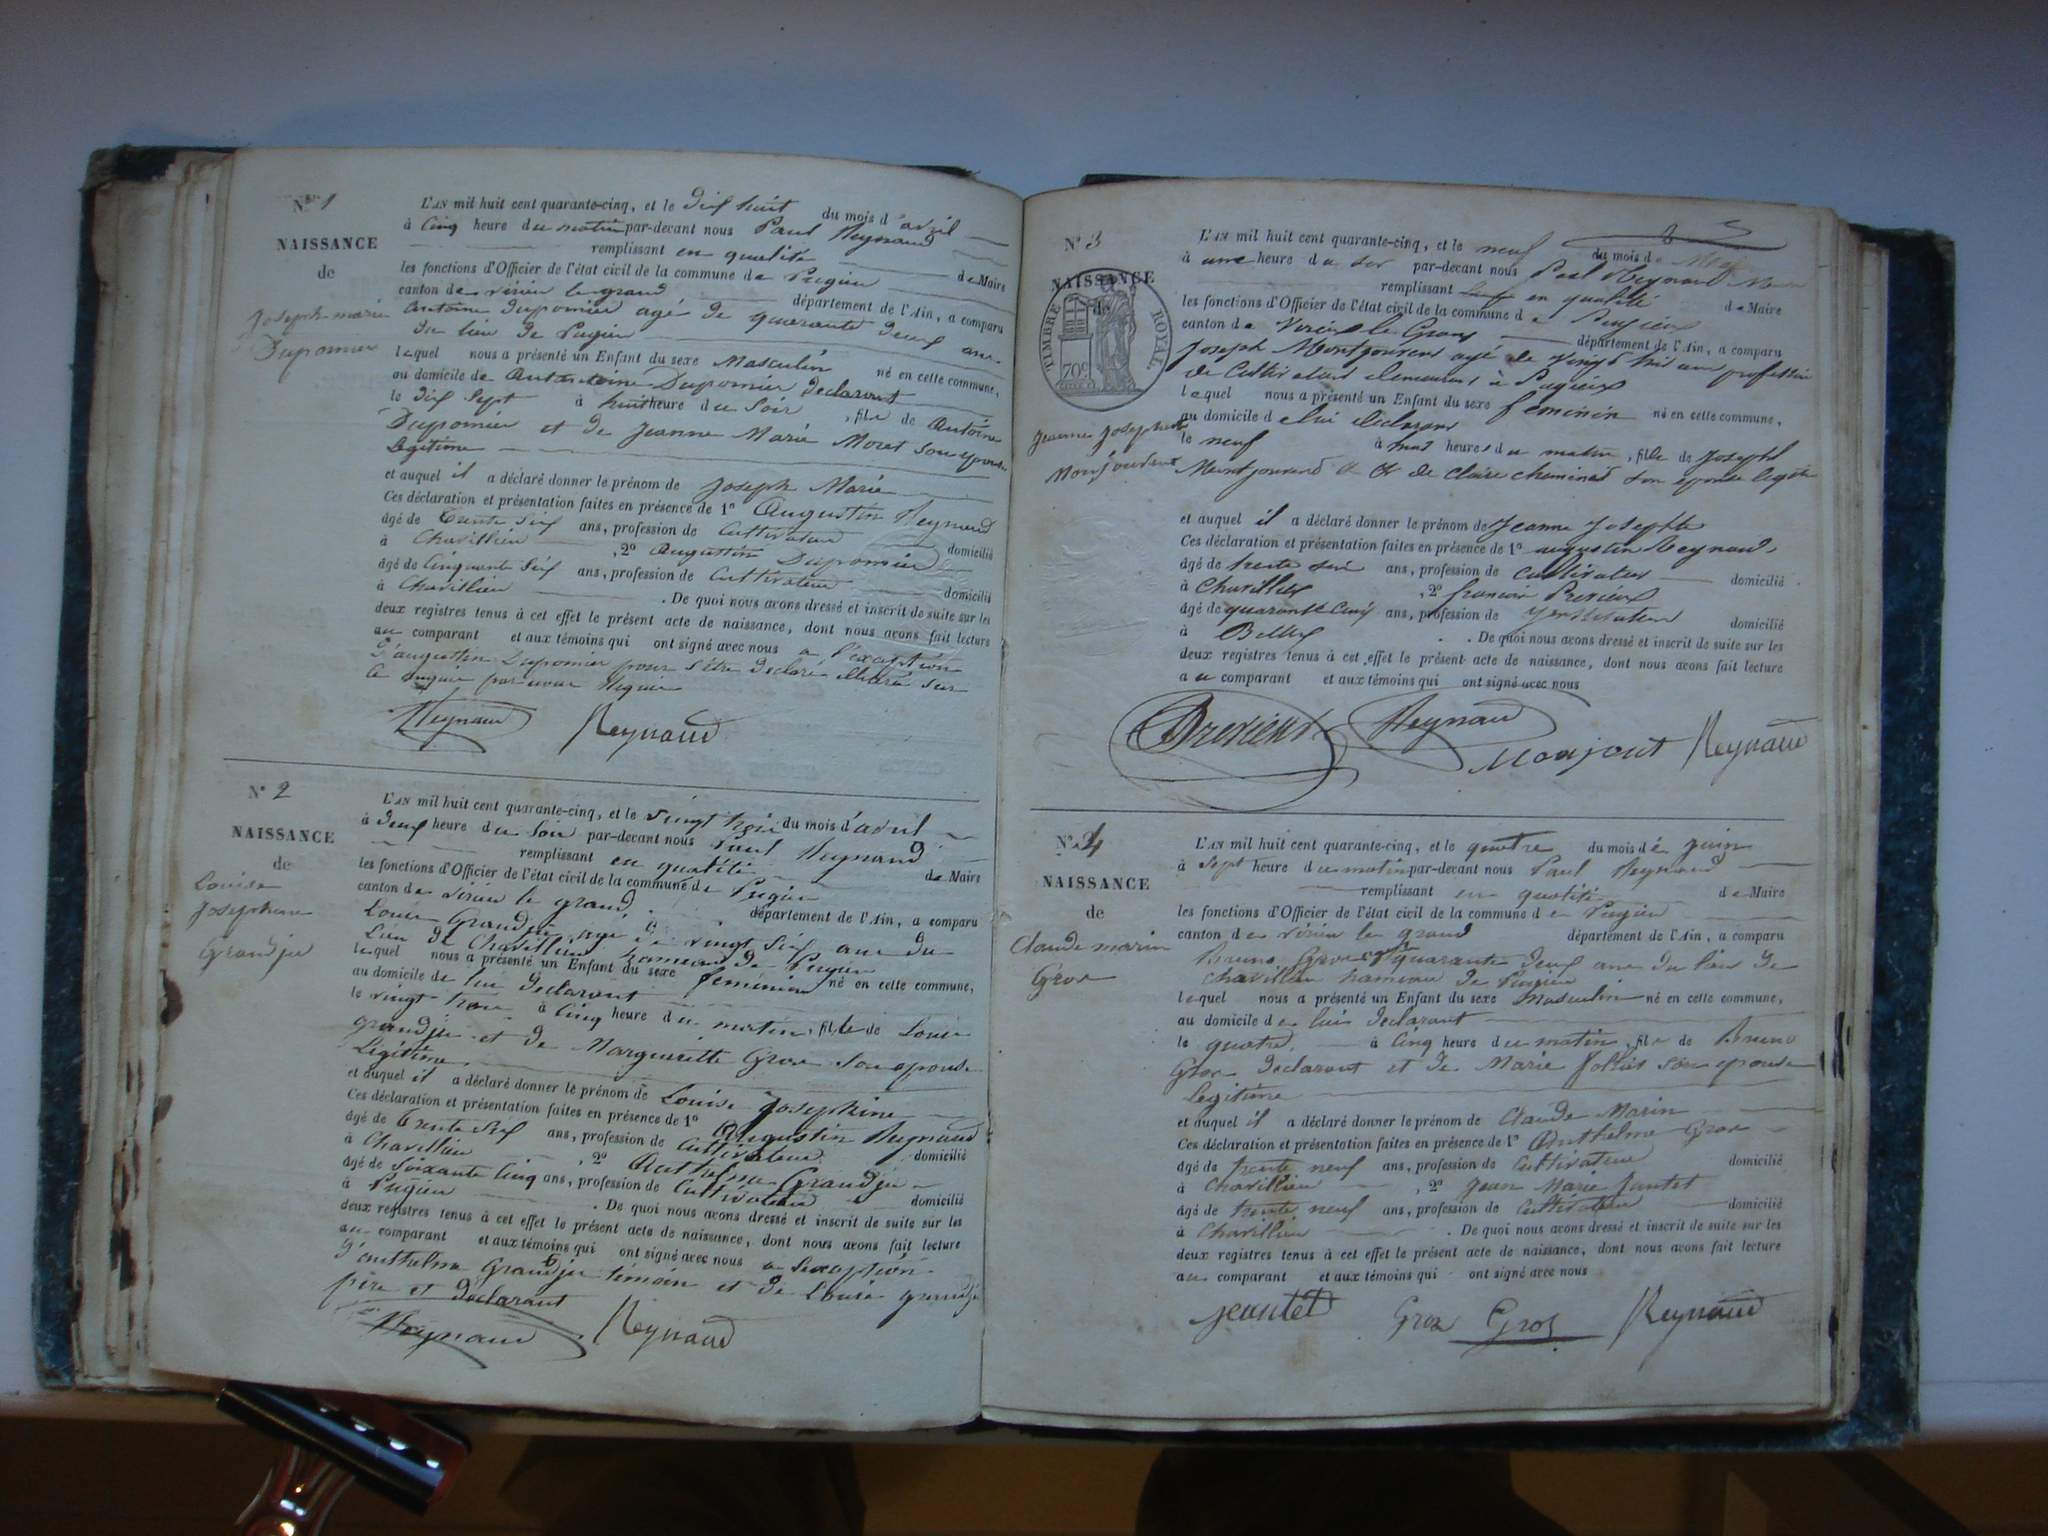 N° 1
NAISSANCE
de
Joseph marie
Dupomier
L'AN mil huit cent quarante-cinq, et le dix huit du mois d'avril
à Cinq heure du matin par-devant nous Paul Reynaud
remplissant en qualité de Maire
les fonctions d'Officier de l'état civil de la commune de Pugieu
canton de virieu le grand département de l'Ain, a comparu
Antoine Dupomier agé de quarante deux ans
du lieu de Pugieu
lequel nous a présenté un Enfant du sexe Masculin né en cette commune,
au domicile de Antoine Dupomier Déclarant
le dix sept à huit heure du Soir, fils de Antoine
Dupomier et de Jeanne Marie Moret son épouse
Légitime
et auquel il a déclaré donner le prénom de Joseph Marie
Ces déclaration et présentation faites en présence de 1° Augustin Reynaud
âgé de trente six ans, profession de Cultivateur domicilié
à Chavillieu, 2° Augustin Dupomier
âgé de Cinquante six ans, profession de Cultivateur domicilié
à Chavillieu. De quoi nous avons dressé et inscrit de suite sur les
deux registres tenus à cet effet le présent acte de naissance, dont nous avons fait lecture
au comparant et aux témoins qui ont signé avec nous a l'exception
d'augustin Dupomier pour s'être déclaré illitéré sur
Ce enquis par nous
Reynaud Reynaud
N° 2
NAISSANCE
de
Louise
Josephine
Grandju
L'AN mil huit cent quarante-cinq, et le vingt trois du mois d'avril
à deux heure du Soir par-devant nous Paul Reynaud
remplissant en qualité de Maire
les fonctions d'Officier de l'état civil de la commune de Pugieu
canton de virieu le grand, département de l'Ain, a comparu
Louis Grandju, agé de vingt six ans du
Lieu de Chavillieu hameau de Pugieu
lequel nous a présenté un Enfant du sexe féminin né en cette commune,
au domicile de lui Déclarant
le vingt trois à Cinq heure du matin, fille de Louis
Grandju et de Marguerite Gros son épouse
Légitime
et auquel il a déclaré donner le prénom de Louise Josephine
Ces déclaration et présentation faites en présence de 1° Augustin Reynaud
âgé de trente six ans, profession de Cultivateur domicilié
à Chavillieu, 2° Anthelme Grandju
âgé de Soixante Cinq ans, profession de Cultivateur domicilié
à Pugieu. De quoi nous avons dressé et inscrit de suite sur les
deux registres tenus à cet effet le présent acte de naissance, dont nous avons fait lecture
au comparant et aux témoins qui ont signé avec nous a l'exception
d'anthelme Grandju témoin et de Louis grandju
père et déclarant
Reynaud Reynaud
N° 3
NAISSANCE
de
TIMBRE ROYAL
70c
Jeanne Josephte
Monjouvent
L'AN mil huit cent quarante-cinq, et le neuf du mois de Mai
à une heure du soir par-devant nous Paul Reynaud Maire
remplissant en qualité de Maire
les fonctions d'Officier de l'état civil de la commune de Pugieu
canton de Virieu le Grand département de l'Ain, a comparu
Joseph Montjouvent agé de vingt huit ans profession
de Cultivateur demeurant à Pugieu
lequel nous a présenté un Enfant du sexe féminin né en cette commune,
au domicile de lui déclarant
le neuf à huit heures du matin, fille de Joseph
Montjouvend et de claire cheminet son épouse légitime
et auquel il a déclaré donner le prénom de Jeanne Josephte
Ces déclaration et présentation faites en présence de 1° augustin Reynaud,
âgé de trente six ans, profession de cultivateur domicilié
à Chavillieu, 2° françois
âgé de quarante cinq ans, profession de domicilié
à Belley. De quoi nous avons dressé et inscrit de suite sur les
deux registres tenus à cet effet le présent acte de naissance, dont nous avons fait lecture
au comparant et aux témoins qui ont signé avec nous
Reynaud Monjout Reynaud
N° 4
NAISSANCE
de
Claude marin
Gros
L'AN mil huit cent quarante-cinq, et le quatre du mois de juin
à Sept heure du matin par-devant nous Paul Reynaud
remplissant en qualité de Maire
les fonctions d'Officier de l'état civil de la commune de Pugieu
canton de virieu le grand département de l'Ain, a comparu
Bruno Gros agé quarante deux ans du lieu de
Chavillieu hameau de Pugieu
lequel nous a présenté un Enfant du sexe Masculin né en cette commune,
au domicile de lui Déclarant
le quatre, à Cinq heure du matin, fils de Bruno
Gros Déclarant et de Marie son épouse
Légitime
et auquel il a déclaré donner le prénom de Claude Marin
Ces déclaration et présentation faites en présence de 1° Anthelme Gros
âgé de trente neuf ans, profession de Cultivateur domicilié
à Chavillieu, 2° Jean Marie Jantet
âgé de trente neuf ans, profession de Cultivateur domicilié
à Chavillieu. De quoi nous avons dressé et inscrit de suite sur les
deux registres tenus à cet effet le présent acte de naissance, dont nous avons fait lecture
au comparant et aux témoins qui ont signé avec nous
jeantet Gros Gros Reynaud